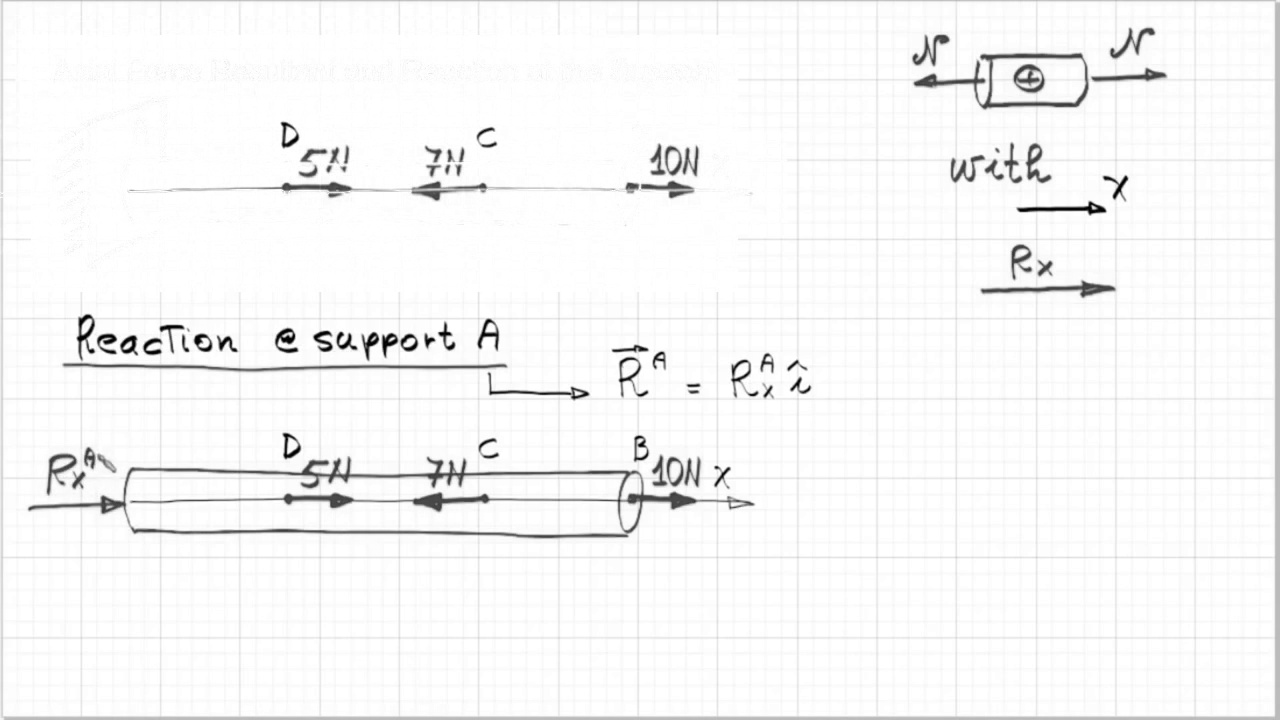 Axial Force Resultant and Reaction at the Support
N N
D C
5N 7N 10N X
with
X
Rx
Reaction @ support A
R^A = Rx^A î
D C B
Rx^A 5N 7N 10N X